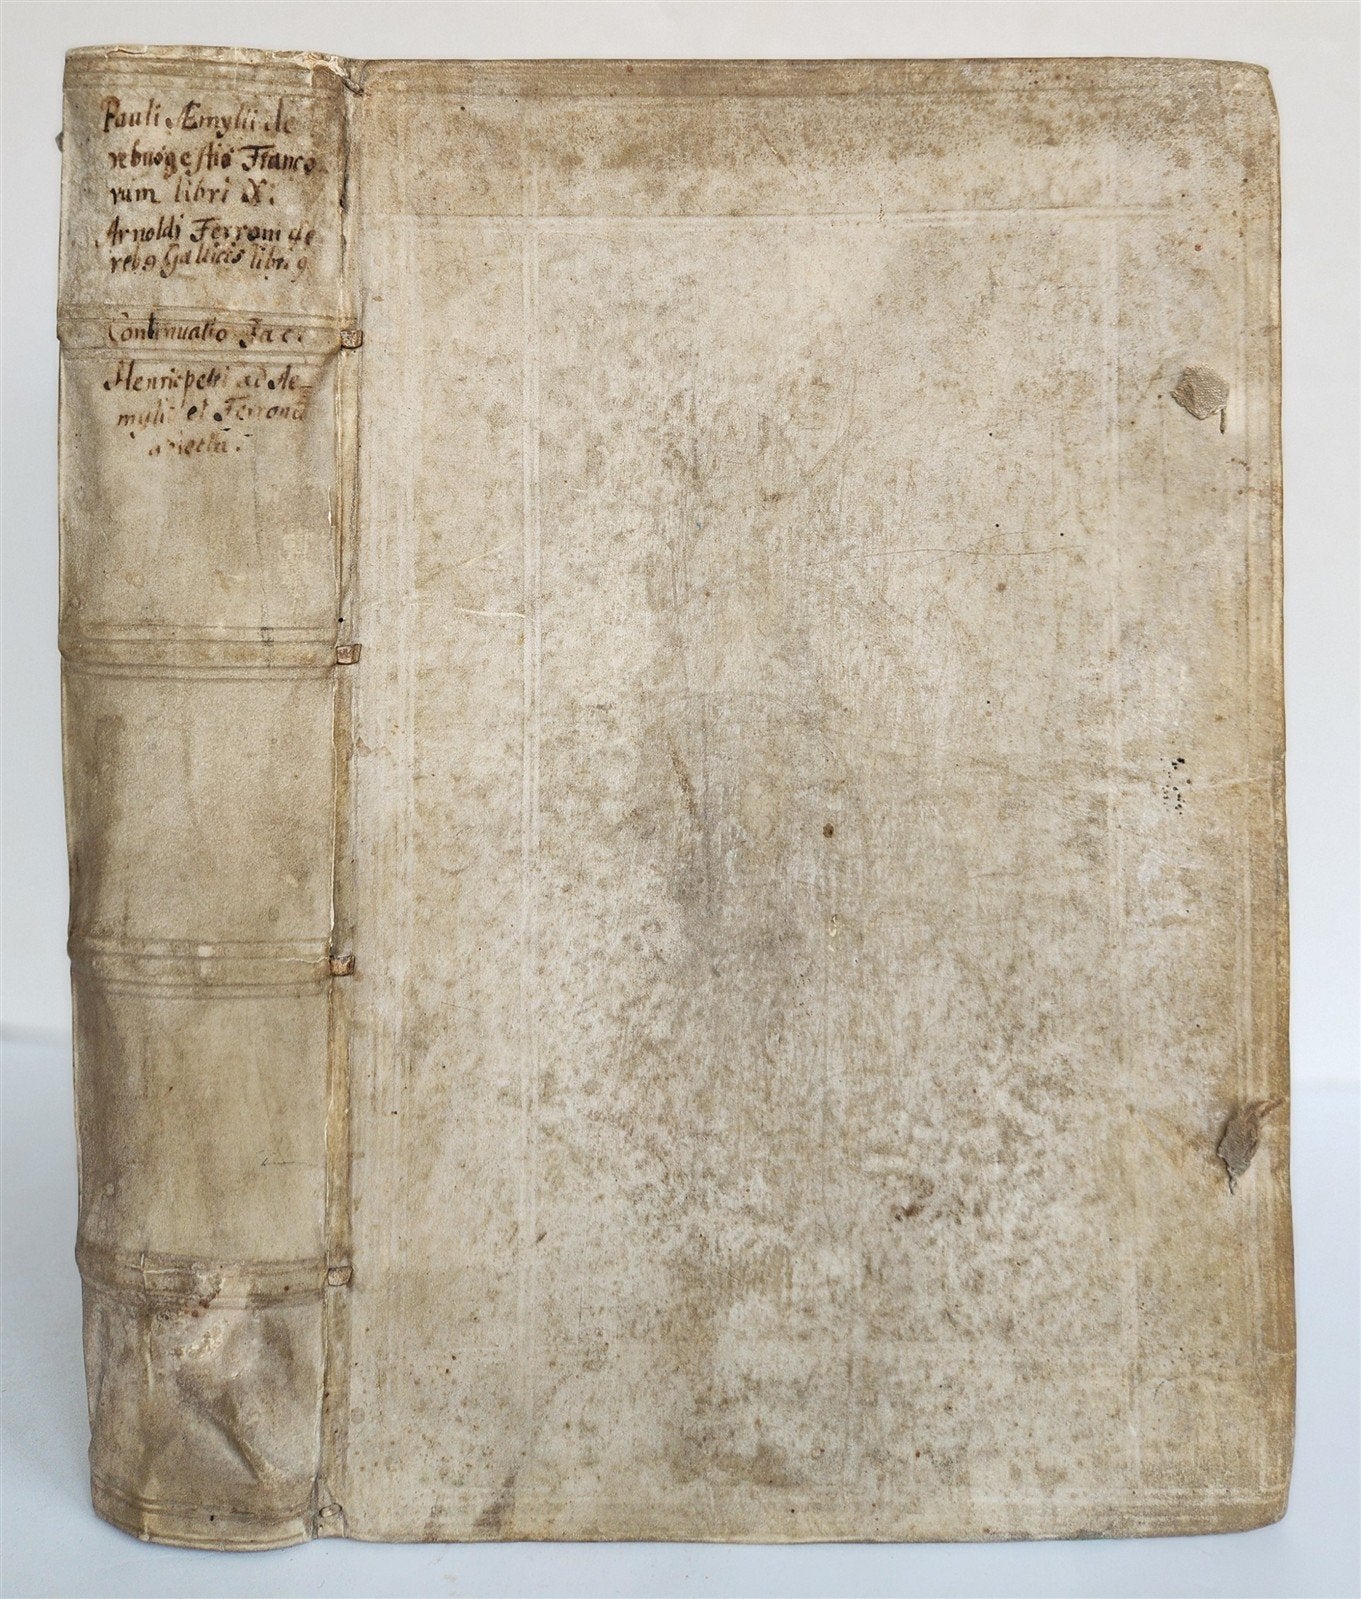 Pauli Æmylii de
rebus gestis Franco
rum libri X.
Arnoldi Ferroni de
reb9 Gallicis libri 9
Continuatio Jac.
Henricpetri ad Ae=
mylie et Ferroni